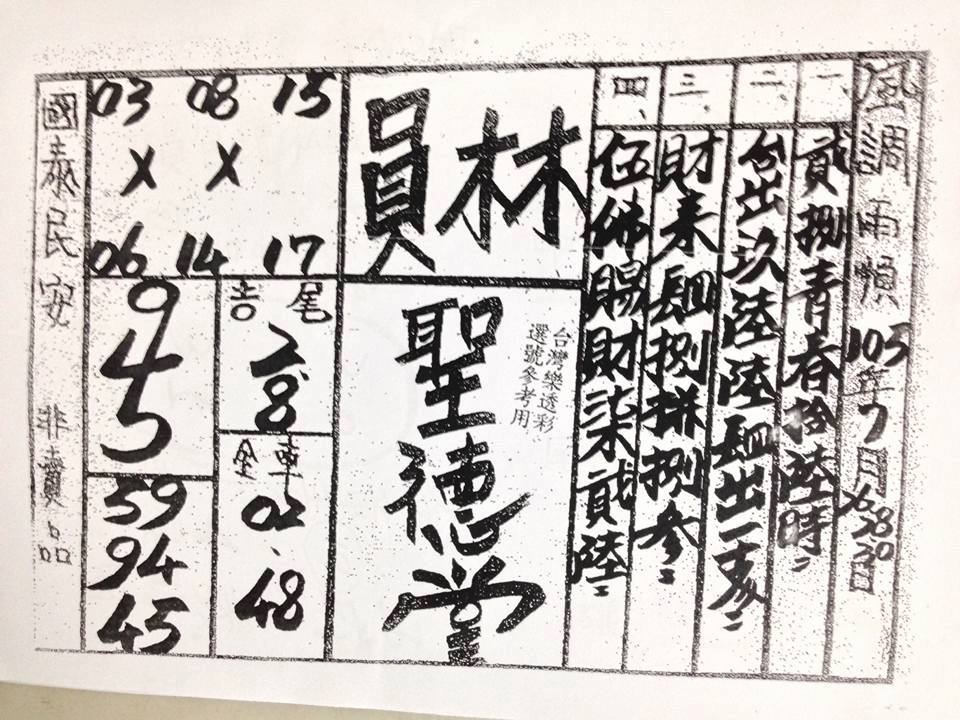 風調雨順 105年7月26.28.30日
一、貳捌青春拾陸時
二、台出玖陸陸
三、財來
四、伍佛賜財柒貳陸
員林
聖德堂
台灣樂透彩
選號參考用
03 08 15
X X
06 14 17
吉尾
2
8
全車
02、48
9
4
5
59
94
45
國泰民安 非賣品